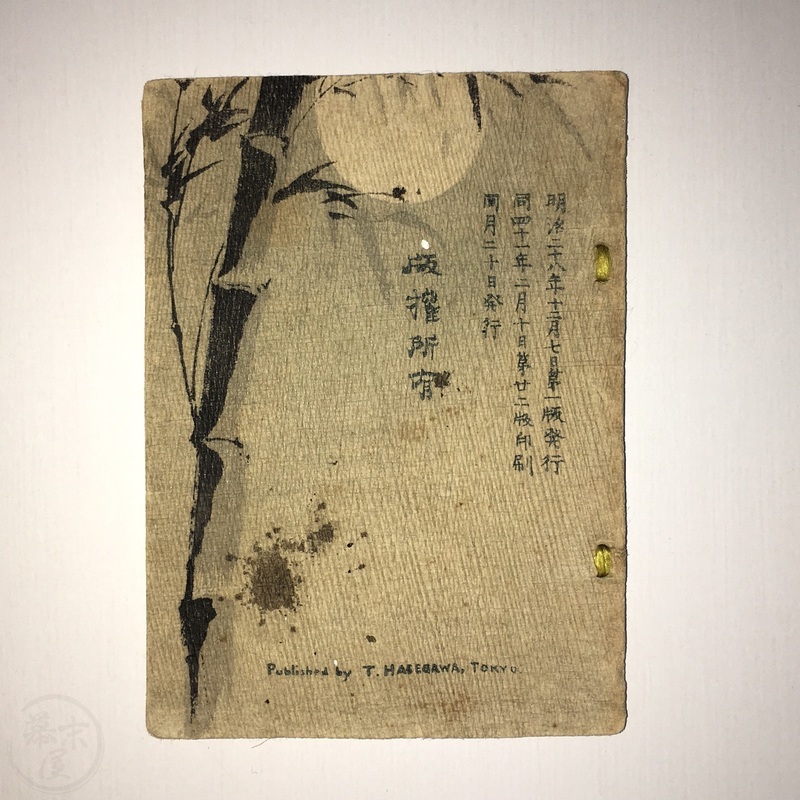 明治二十八年十二月七日第一版発行
同四十一年二月十日第廿二版印刷
同月二十日発行
版權所有
Published by T. HASEGAWA, TOKYO.
幕末屋